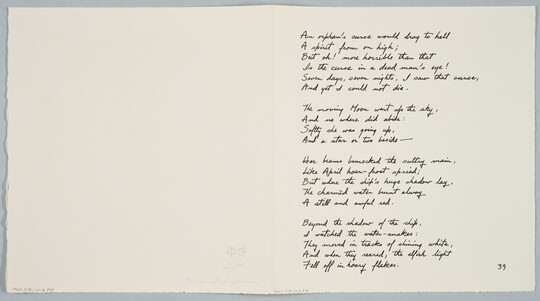 An orphan's curse would drag to hell
A spirit from on high;
But oh! more horrible than that
Is the curse in a dead man's eye!
Seven days, seven nights, I saw that curse,
And yet I could not die.

The moving Moon went up the sky,
And no where did abide:
Softly she was going up,
And a star or two beside—

Her beams bemocked the sultry main,
Like April hoar-frost spread;
But where the ship's huge shadow lay,
The charmèd water burnt alway
A still and awful red.

Beyond the shadow of the ship,
I watched the water-snakes:
They moved in tracks of shining white,
And when they reared, the elfish light
Fell off in hoary flakes.
39